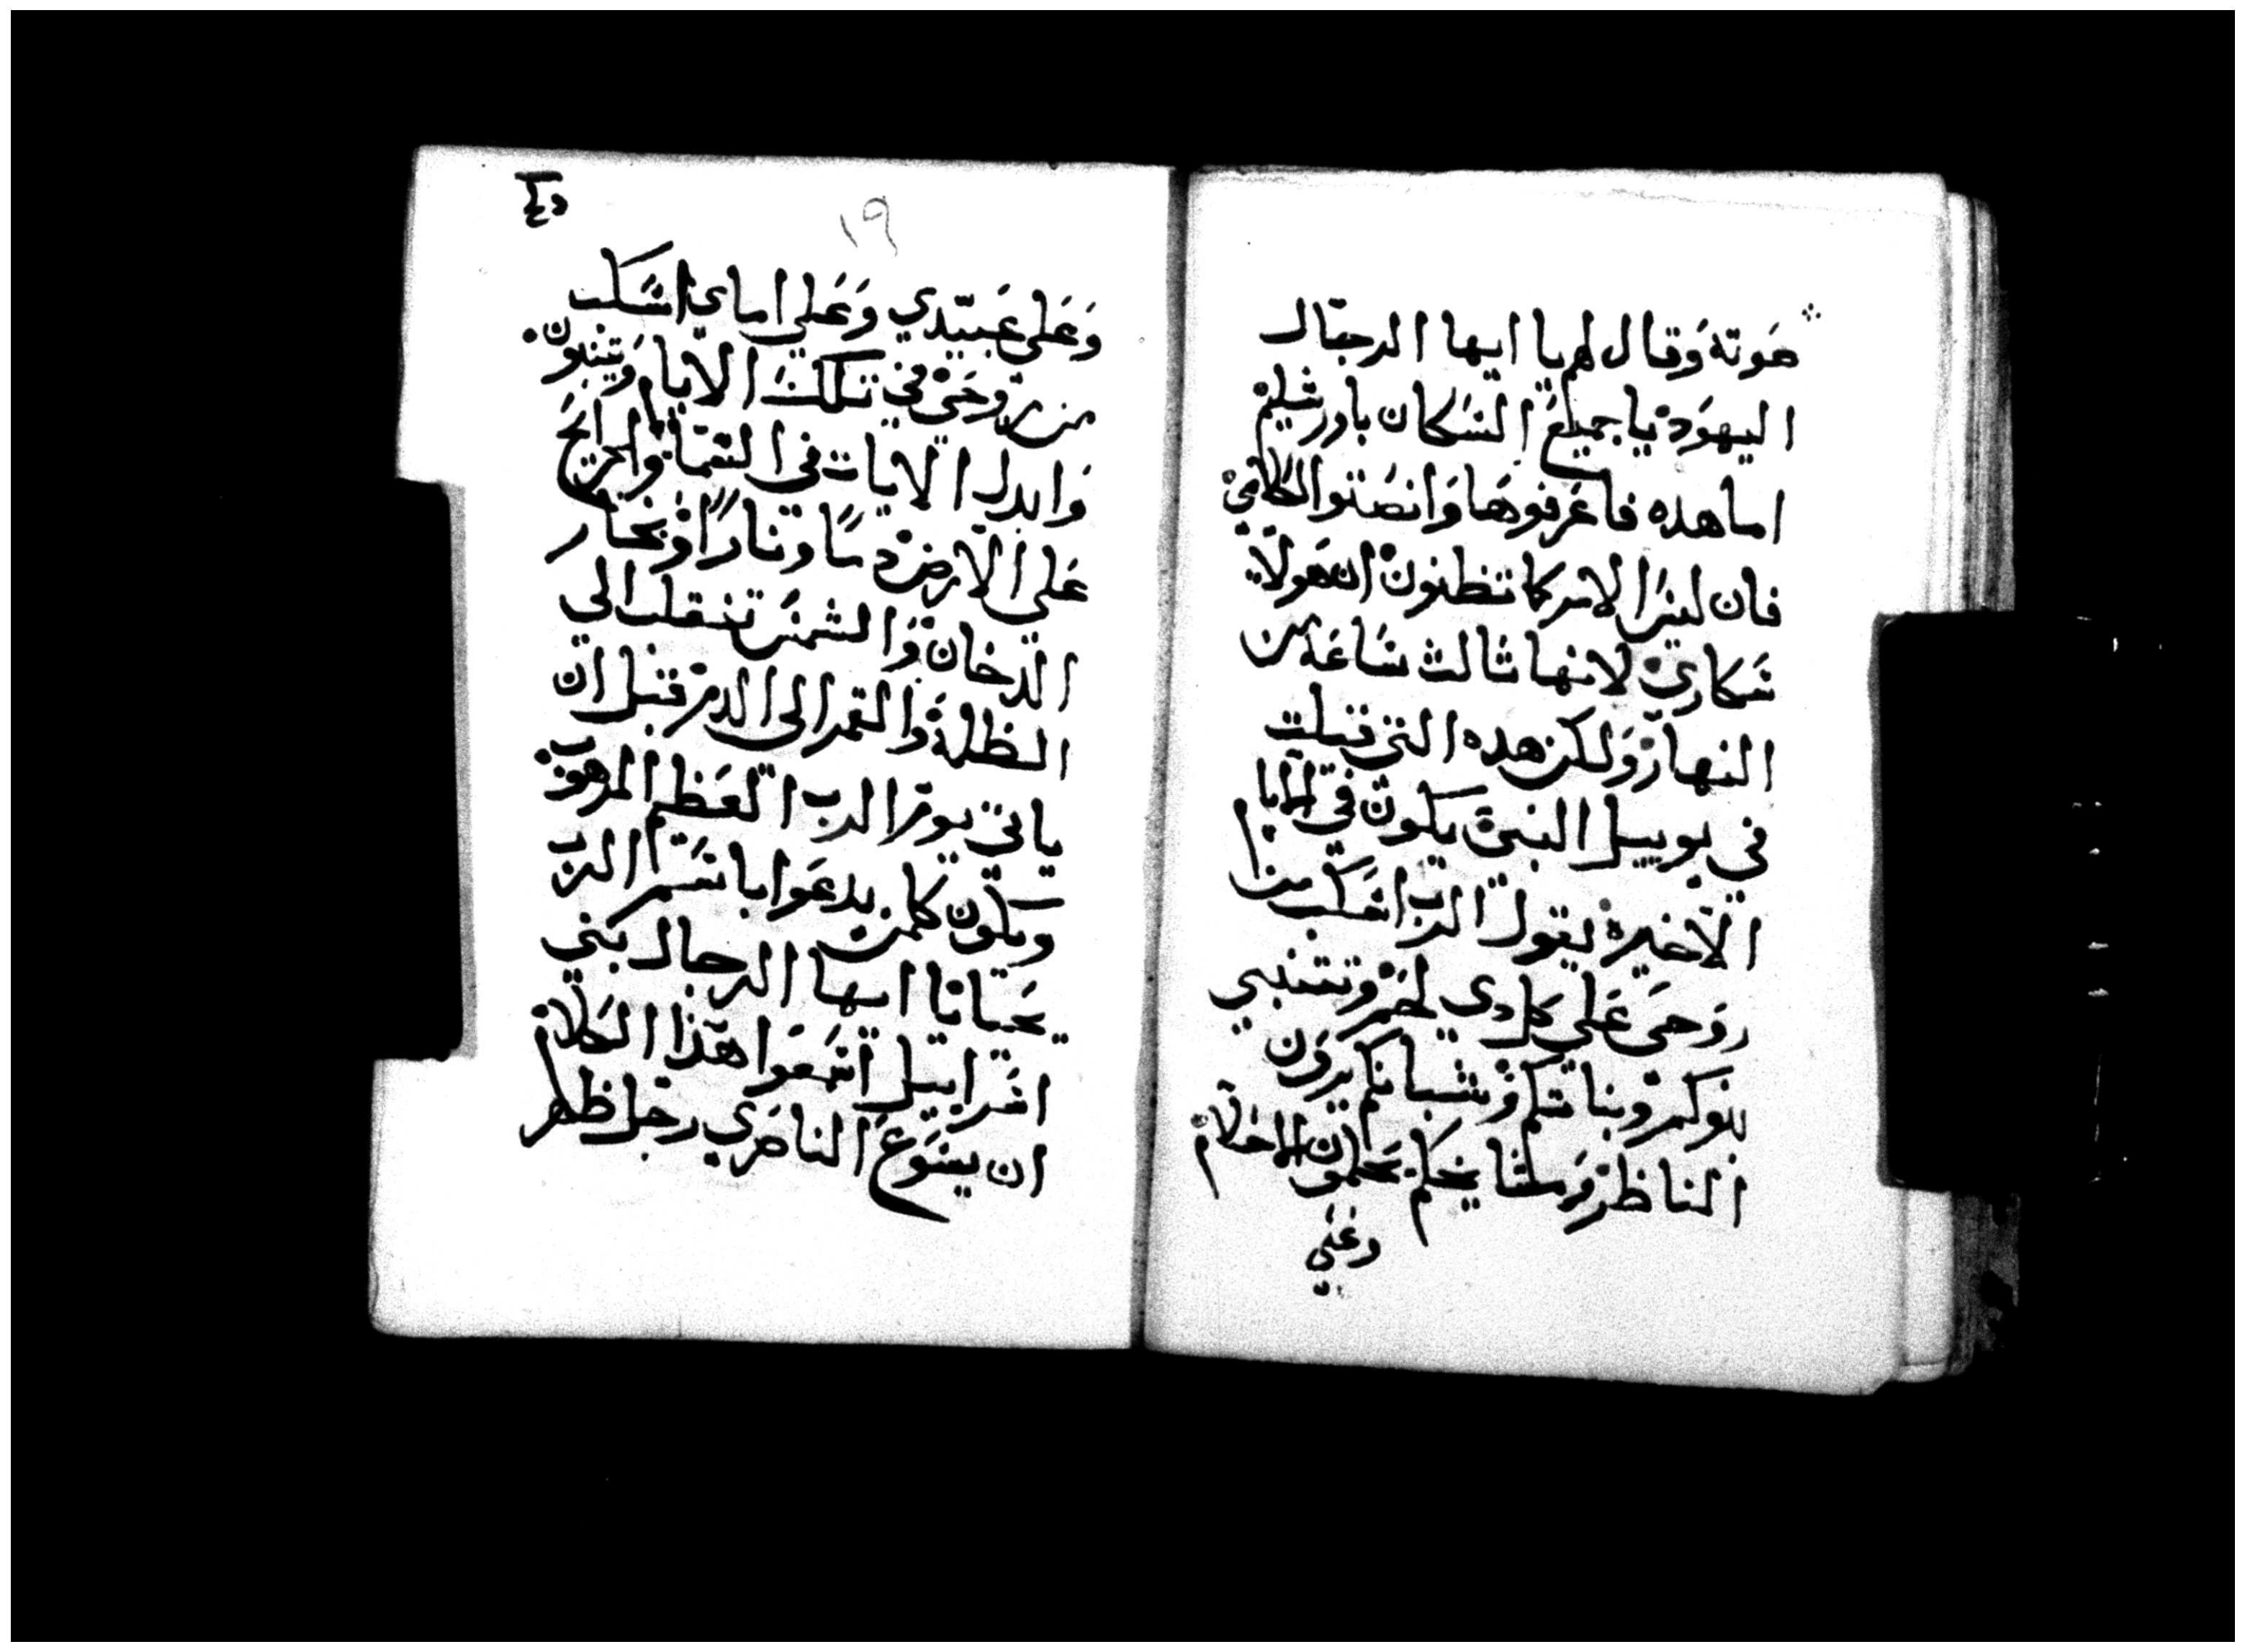 صَوته وَقال لهم يا ايها الرجال
اليهود يا جميع السكان باورشليم
اما هده فاعرفوها وَانصتوا لكلامي
فان ليس الامر كما تظنون ان هولاي
سكاري لانها ثالث ساعه من
النهار وَلكن هده التي قيلت
في يوييل النبي يكون في الايام
الاخيره يقول الرب اسكب من
روحي عَلي كل دي لحم وتتنبي
بنوكم وبناتكم وشبانكم يرون
المناظر ومسلتنا يخكم يحلمون الاحلام
وعلي
١٩
وَعَلي عَبيدي وَعَلي اماي اسكب
من روحي في تلك الايام وَيتنبون
وَابدل الايات في السما والجرايح
عَلي الارض دما ونارا وبخار
الدخان وَالشمس تنقلب الي
الظلمة والقمر الي الدم قبل ان
ياتي يوم الرب العَظيم المرهوب
ويكون كلمن يدعَوا باسم الرب
يحيا يا ايها الرجال بني
اسراييل اسمعَوا هذا الكلام
ان يسوع الناصري رجل ظهر